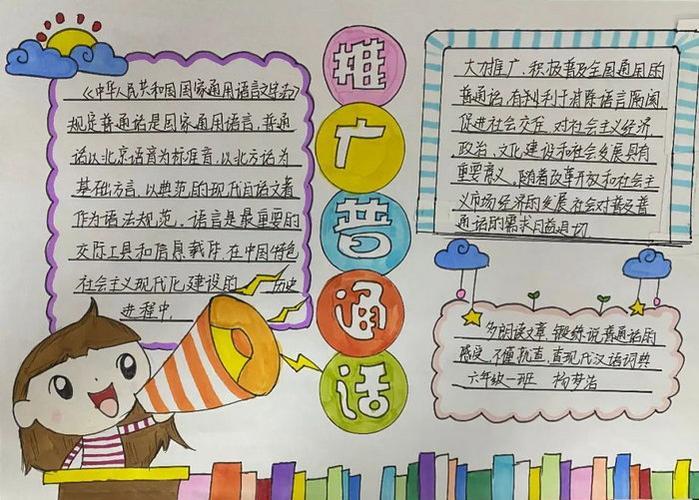 推
广
普
通
话
《中华人民共和国国家通用语言文字法》
规定普通话是国家通用语言，普通
话以北京语音为标准音，以北方话为
基础方言，以典范的现代白话文著
作为语法规范。语言是最重要的
交际工具和信息载体，在中国特色
社会主义现代化建设的 历史
进程中，
大力推广、积极普及全国通用的
普通话，有利于消除语言隔阂，
促进社会交往，对社会主义经济
政治、文化建设和社会发展具有
重要意义，随着改革开放和社会主
义市场经济的发展，社会对普及普
通话的需求日益迫切
多朗读文章，锻练说普通话的
感觉，不懂就查，查现代汉语词典
六年级一班 杨梦洁